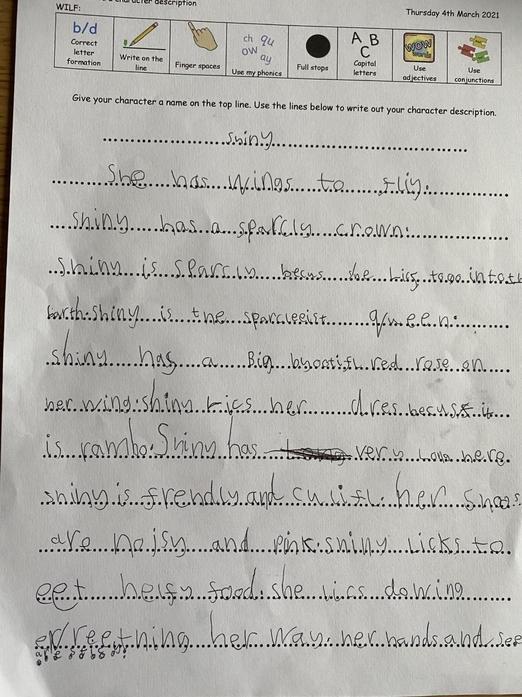 WILF:
character description
Thursday 4th March 2021
b/d
Correct letter formation
Write on the line
Finger spaces
ch qu ow ay
Use my phonics
Full stops
A B C
Capital letters
WOW words
Use adjectives
Use conjunctions
Give your character a name on the top line. Use the lines below to write out your character description.
shiny
She has wings to fliy.
shiny has a sparcly crown.
Shiny is sparcly becus she lics to go into
Earth. shiny is the sparcleeist queen.
shiny has a Big byootifl red rose on
her wing. shiny lics her dres becuse it
is rambo. Shiny has very long here.
shiny is frendly and her
are noisy and pink. shiny licks to
eet helfy food. she lics dowing
evreething her way. her hands and